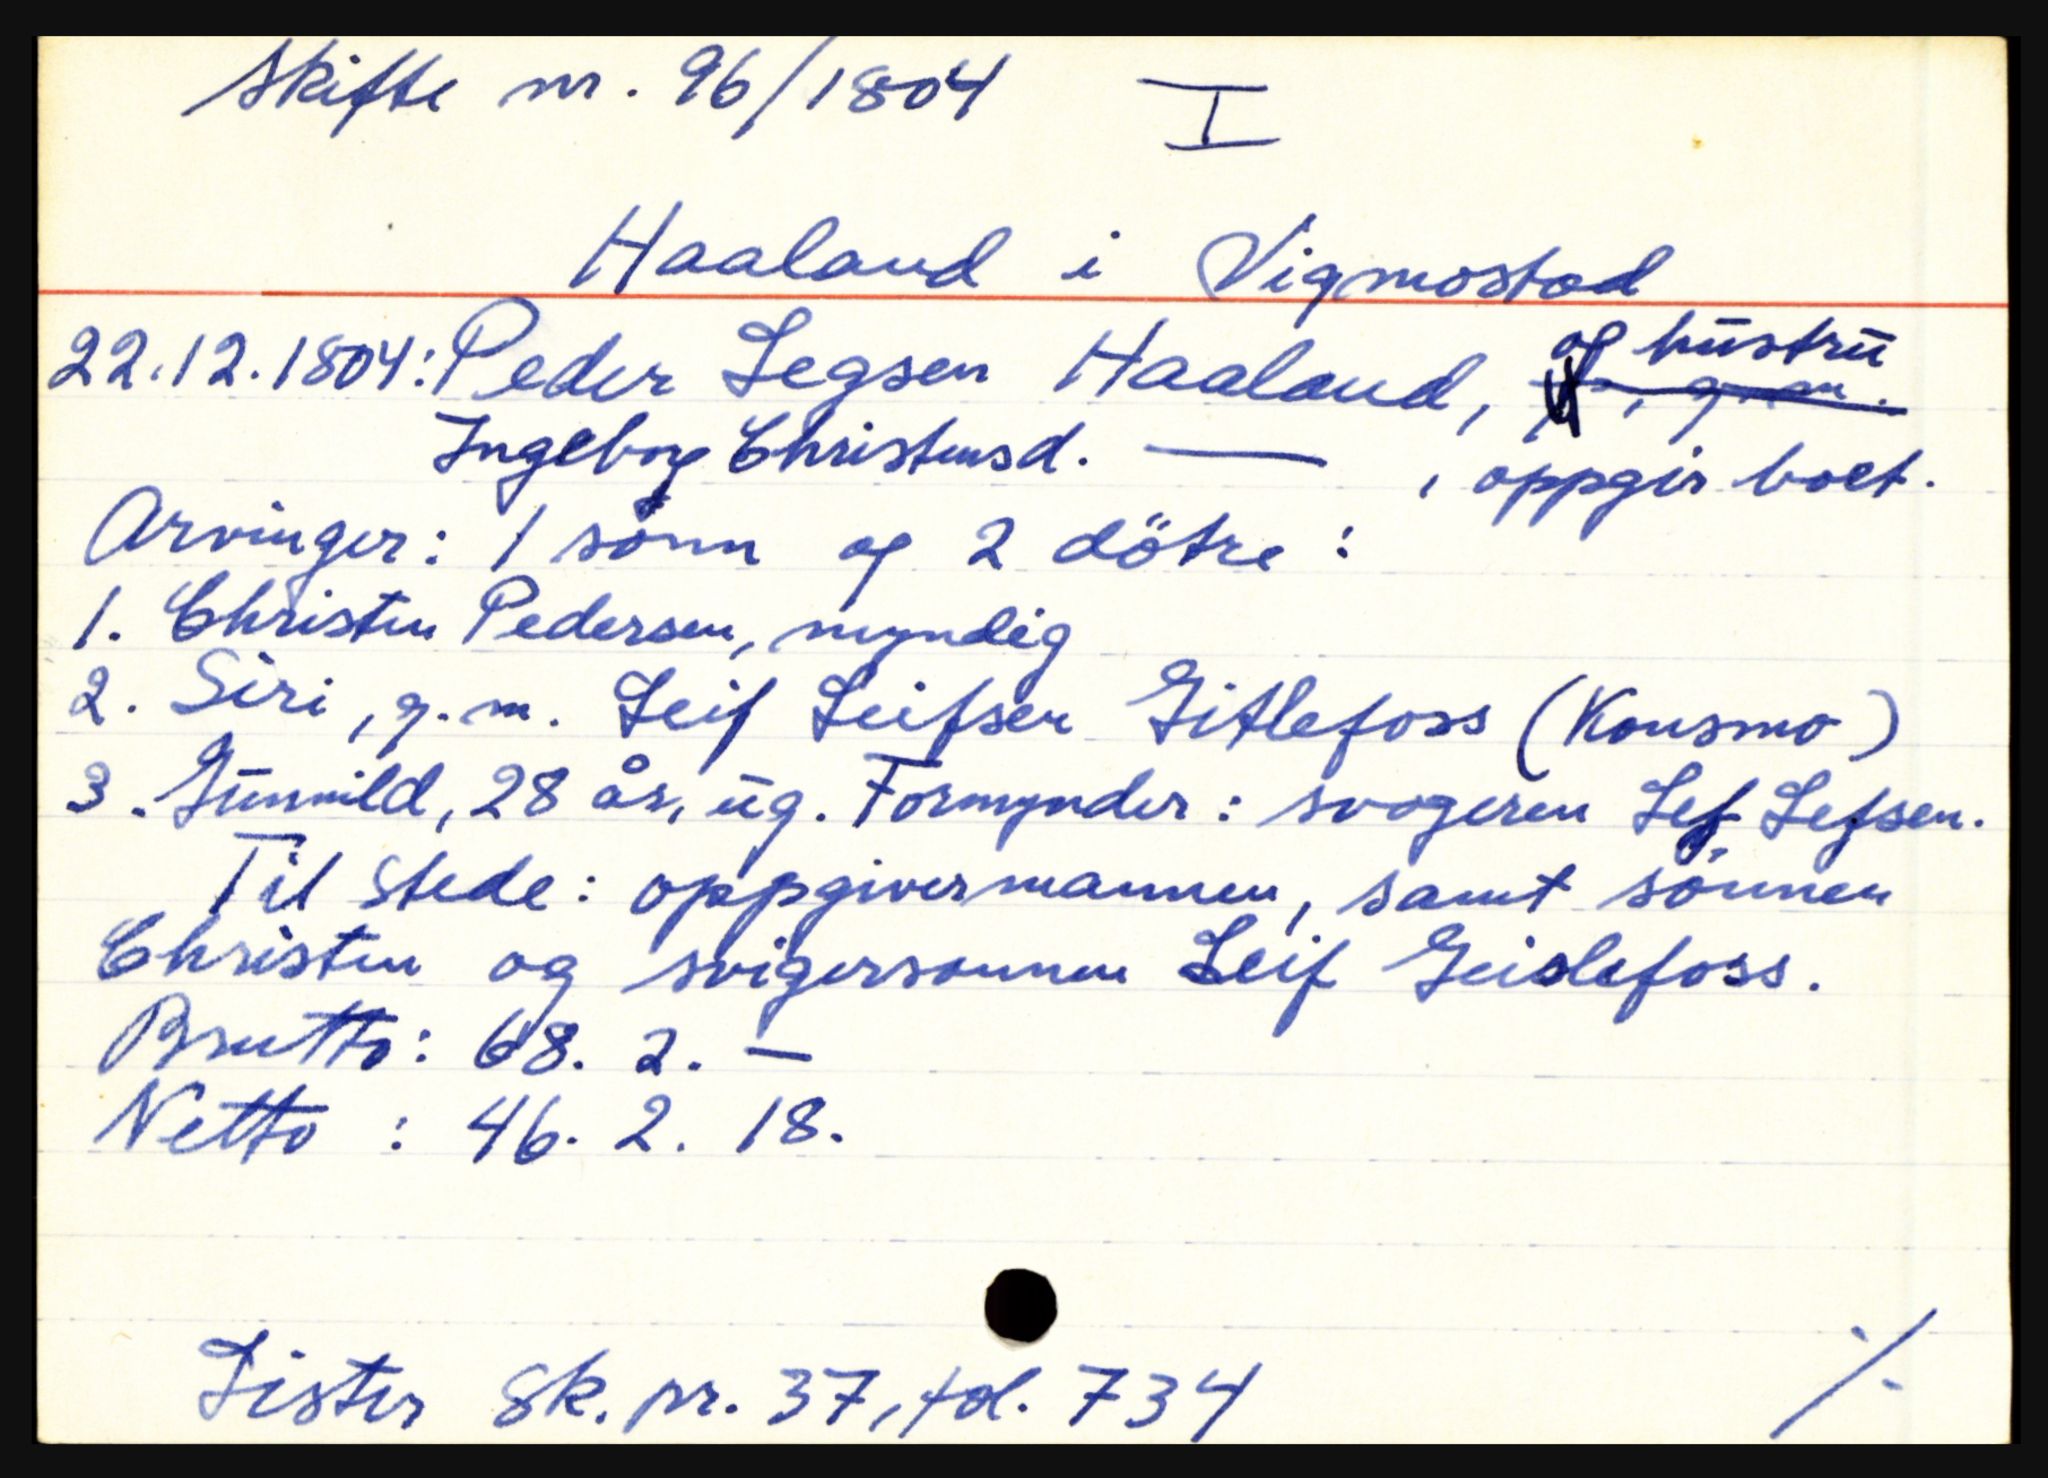 Skifte nr. 96/1804 I
Haaland i Vigmostad
22.12.1804: Peder Legsen Haaland, og hustru
Ingeborg Christensd. — , oppgir boet.
Arvinger: 1 sönn og 2 dötre :
1. Christen Pedersen, myndig
2. Siri, g.m. Leif Leifsen Gitlefoss (Konsmo)
3. Gunnild, 28 år, ug. Formynder: svogeren Lef Lefsen.
Til stede: oppgivermannen, samt sönnen
Christen og svigersonnen Leif Geislefoss.
Brutto: 68. 2. —
Netto : 46. 2. 18.
Lister sk. pr. 37, fol. 734 ./.